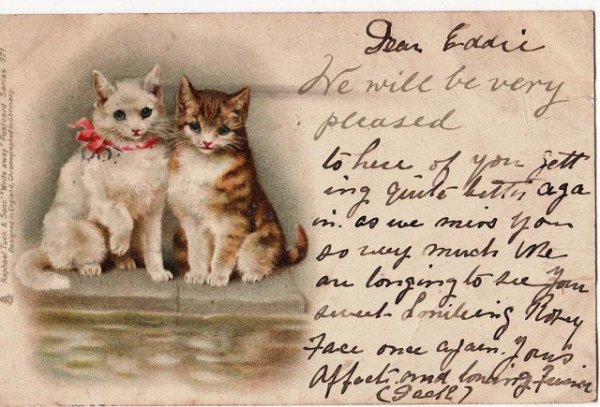 Dear Eddie
We will be very
pleased
to here of you gett
ing quite better aga
in. as we miss you
so very much We
are longing to see your
sweet Smileing Rosey
Face once again. Yours
Affect. and loving Friend
(Jack)
Raphael Tuck & Sons' "Write away" Postcard Series 971.
Designed in England, Chromographed in Germany